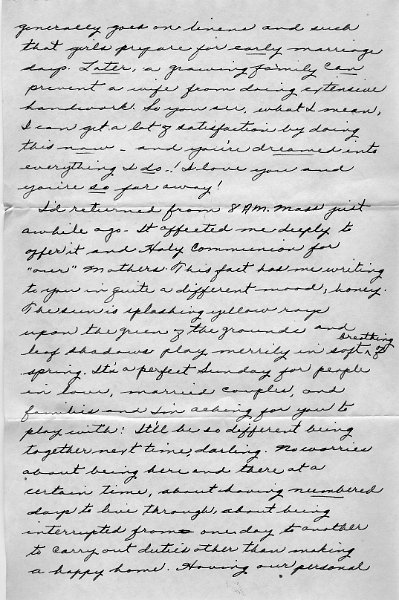 generally goes on linens and such
that girls prepare for early marriage
days. Later, a growing family can
prevent a wife from doing extensive
handwork. So you see, what I mean,
I can get a lot of satisfaction by doing
this now - and you're dreamed into
everything I do.! I love you and
you're so far away!
I'd returned from 8 A.M. Mass just
awhile ago. It affected me deeply to
offer it and Holy Communion for
"our" Mothers. This fact has me writing
to you in quite a different mood, honey.
The sun is splashing yellow rays
upon the green of the grounds and
leaf shadows play merrily in soft breathing of
spring. It's a perfect Sunday for people
in love, married couples, and
families and I'm aching for you to
play with! It'll be so different being
together next time, darling. No worries
about being here and there at a
certain time, about having numbered
days to live through, about being
interrupted from one day to another
to carry out duties other than making
a happy home. Having our personal